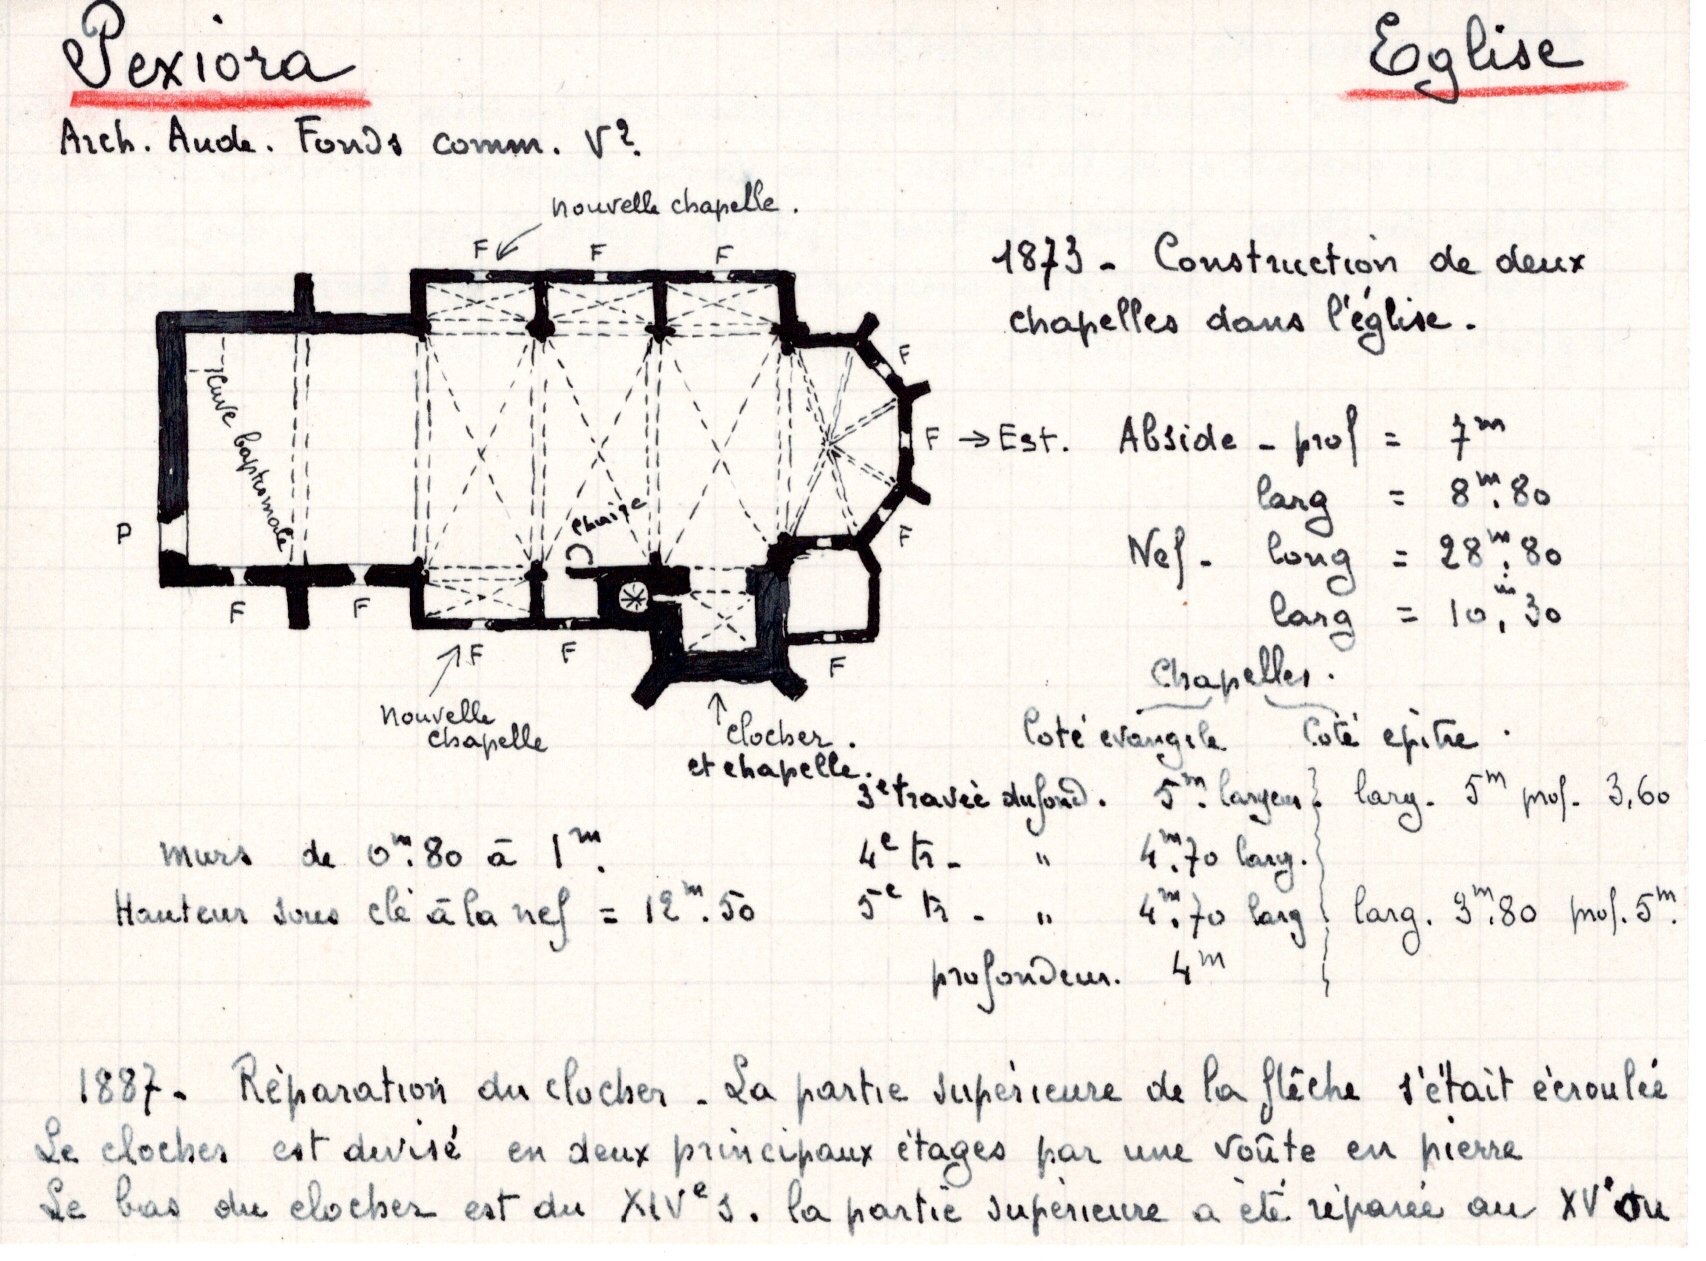 Pexiora
Eglise
Arch. Aude. Fonds comm. V2.
nouvelle chapelle.
F F F
1873 - Construction de deux
chapelles dans l'église.
cuve baptismale
F
F → Est.
F
P
chaire
F F F F F
nouvelle
chapelle
clocher.
et chapelle.
Abside - prof = 7m
larg = 8m.80
Nef - long = 28m.80
larg = 10m,30
Chapelles.
Coté évangile Coté epître.
3e travée du fond. 5m. largeur larg. 5m prof. 3,60
4e tr - " 4m.70 larg.
5e tr - " 4m.70 larg larg. 3m.80 prof. 5m.
profondeur. 4m
murs de 0m.80 à 1m.
Hauteur sous clé à la nef = 12m.50
1887 - Réparation du clocher - La partie supérieure de la flêche s'était écroulée
Le clocher est devisé en deux principaux étages par une voûte en pierre
Le bas du clocher est du XIVe s. la partie supérieure a été réparée au XVe ou